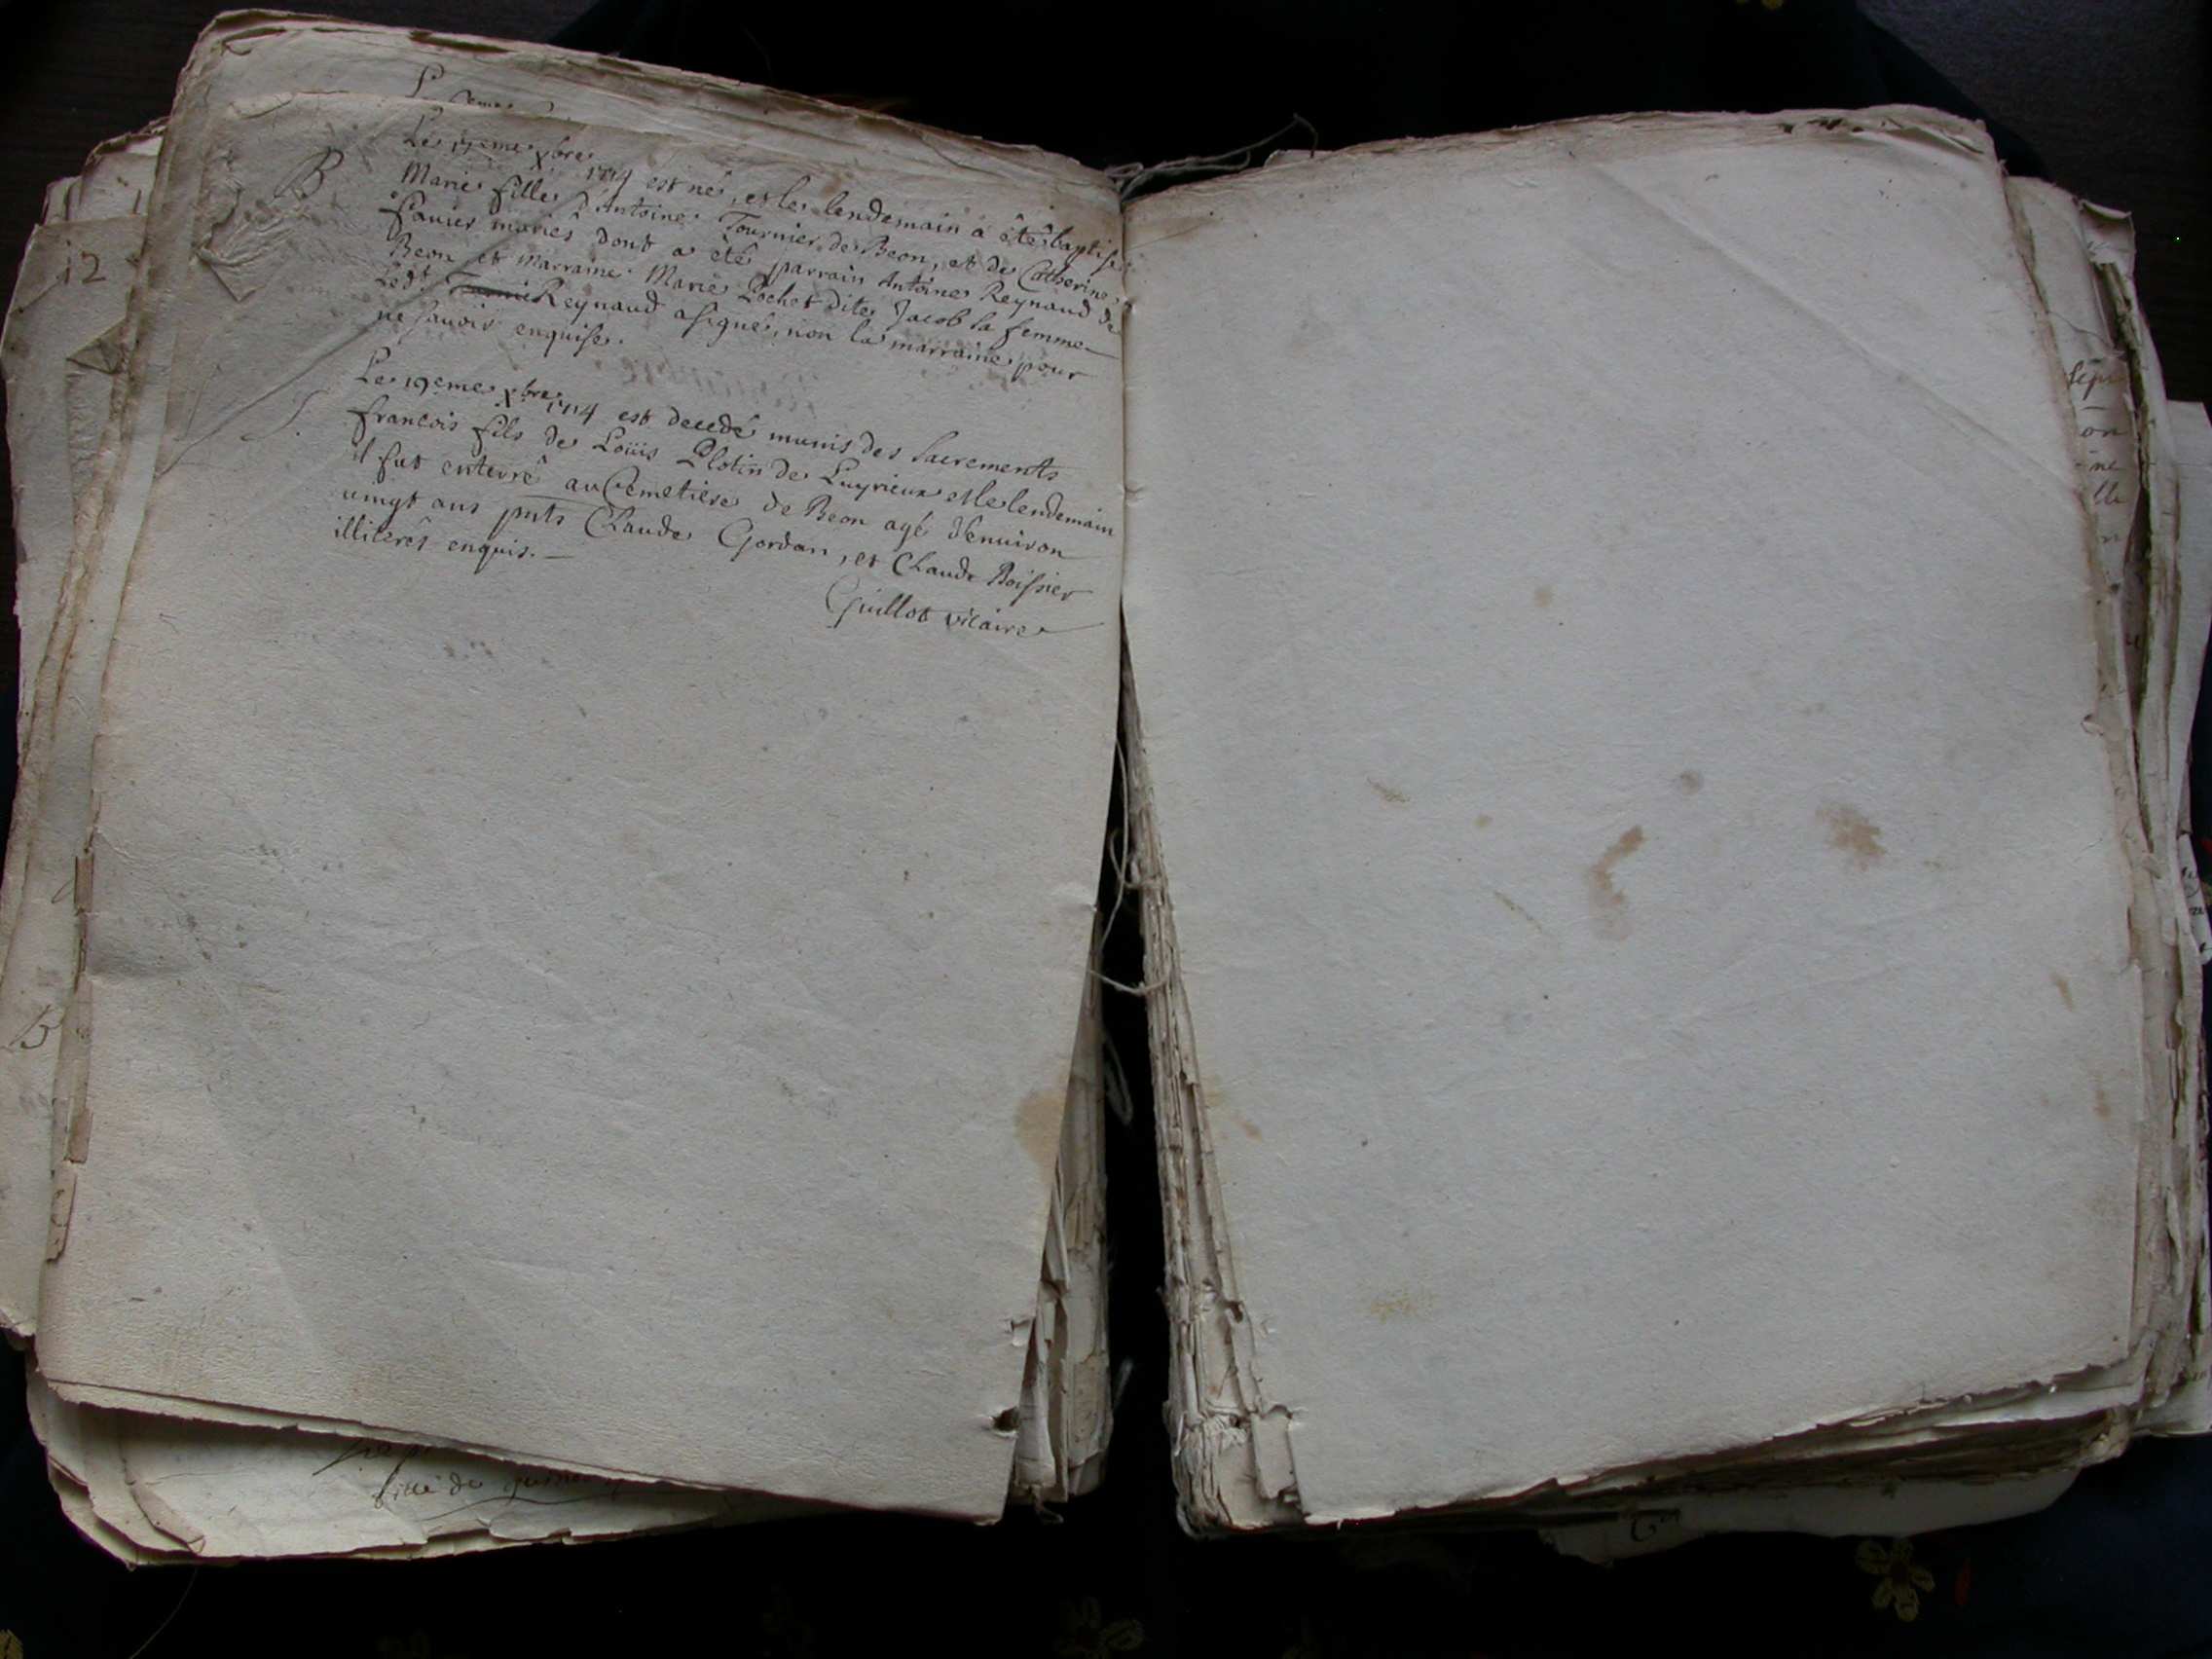 B
Le 15eme xbre 1714 est né, et le lendemain a été baptisé
Marie fille d'Antoine Tournier de Beon, et de Catherine
Favier mariés dont a été parrain Antoine Reynaud de
Beon et marraine Marie Pochet dite Jacob la femme
Led. Reynaud a signé, non la marraine pour
ne savoir enquise.
S.
Le 19eme xbre 1714 est decedé munis des sacrements
francois fils de Loüis Plotin de Luyrieux et le lendemain
il fut enterré au Cemetiere de Beon agé d'enuiron
uingt ans pnts Claude Gordan, et Claude Boissier
illiterés enquis.
Guillot vicaire
12
B
fille de